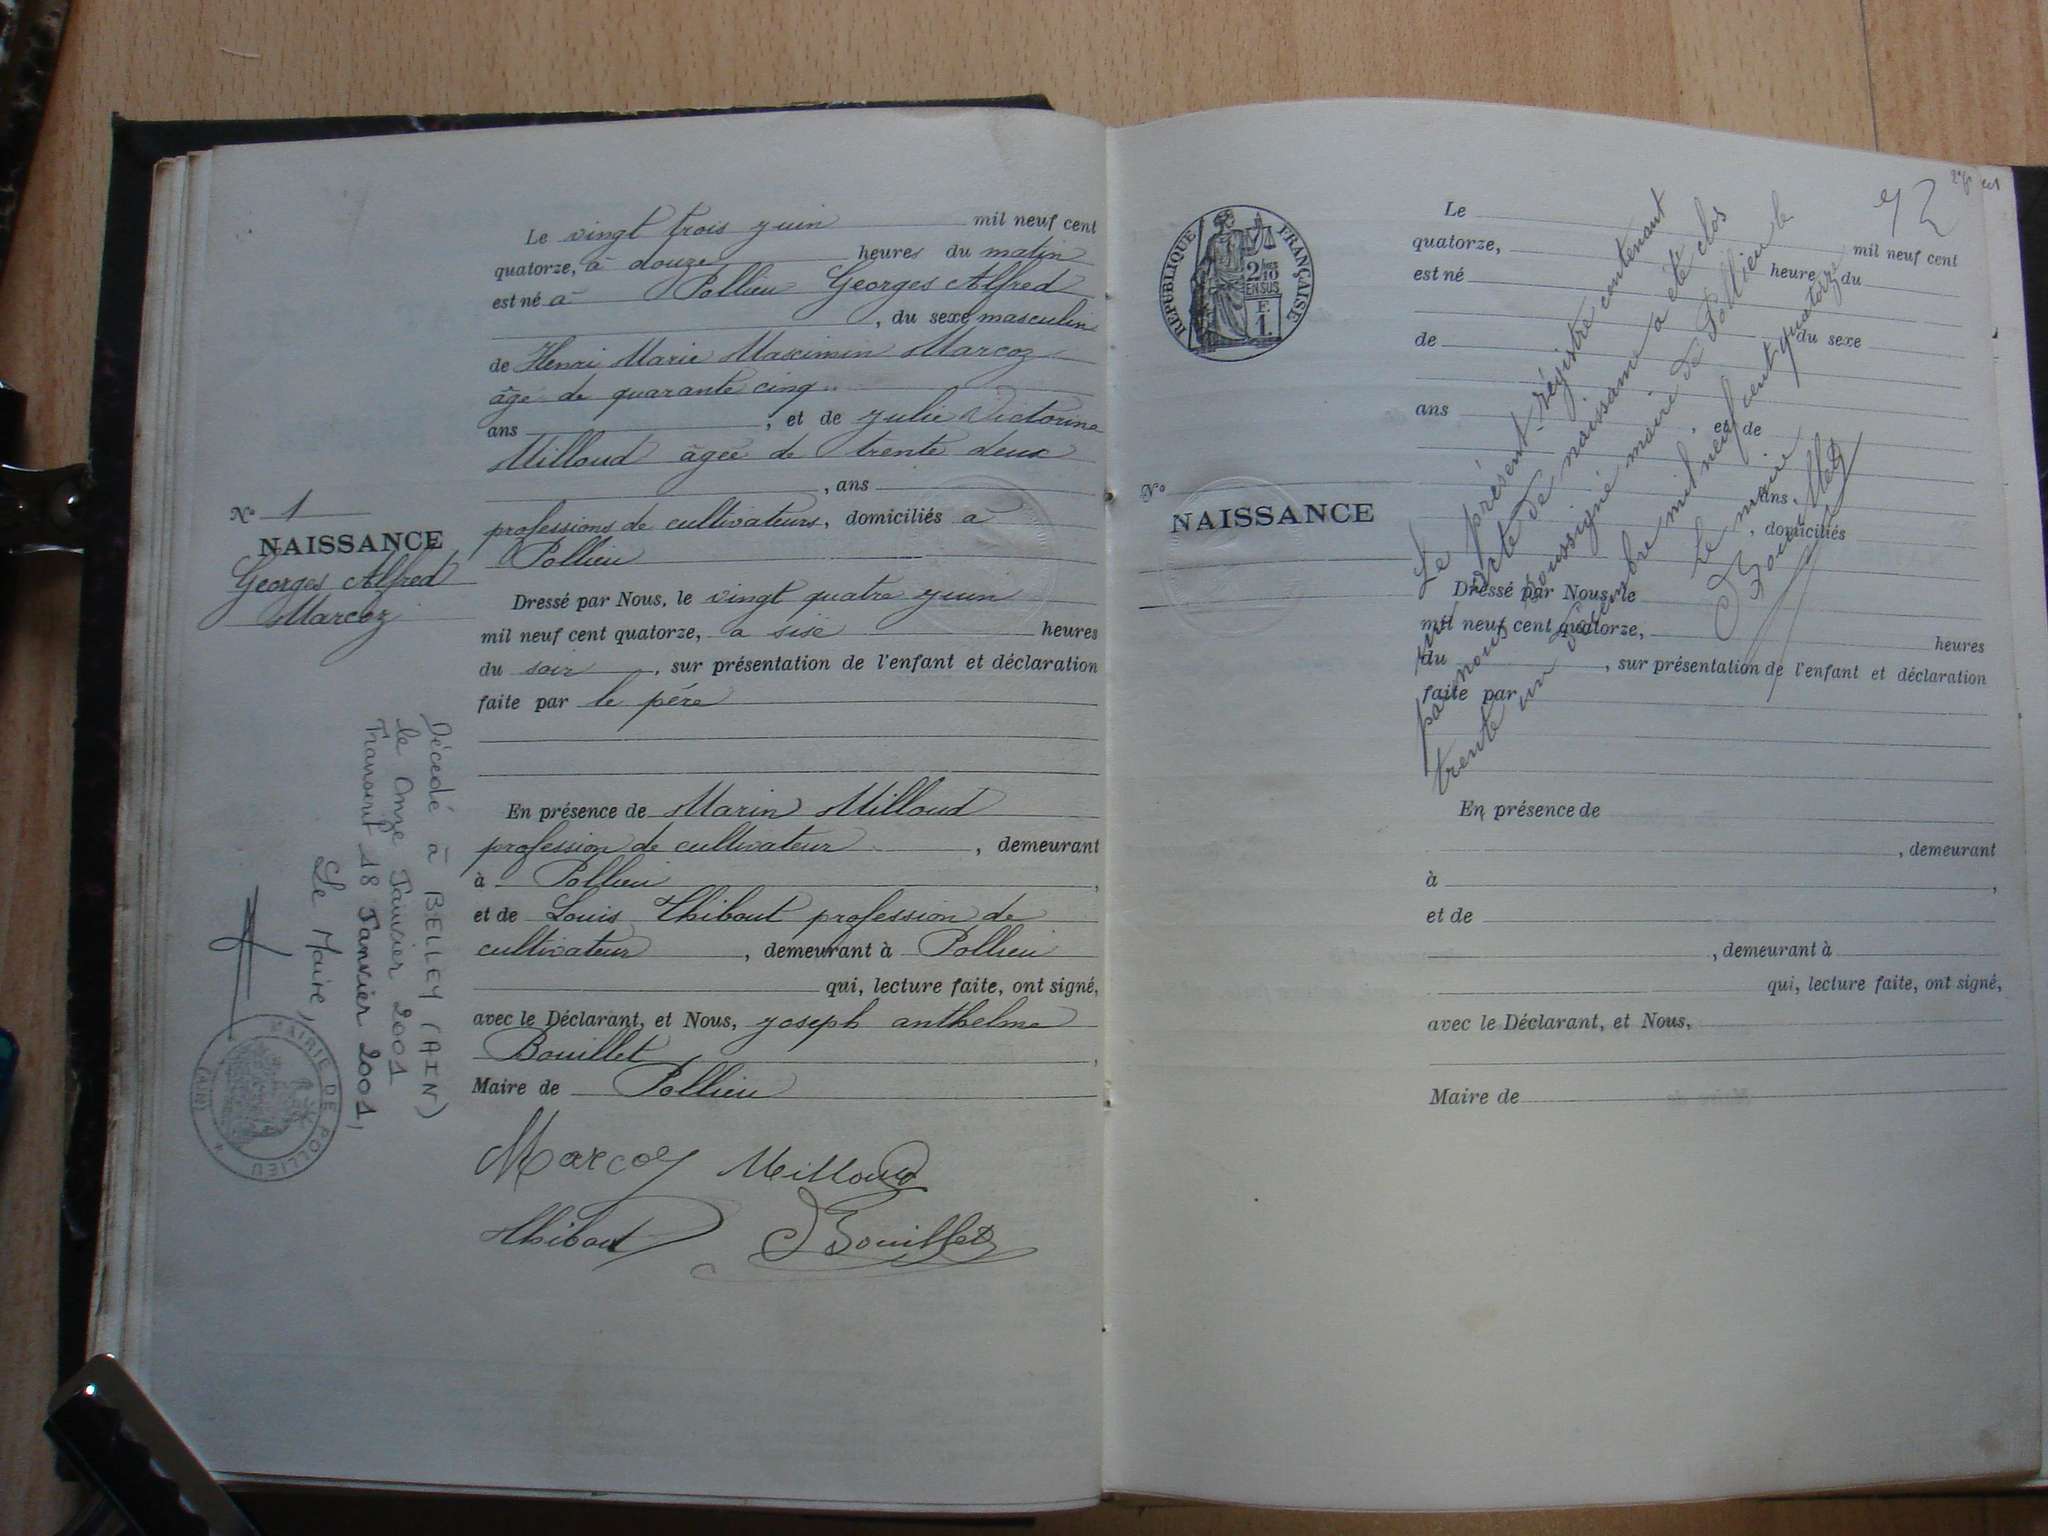 Le vingt trois juin mil neuf cent
quatorze, à douze heures du matin
est né à Pollieu Georges Alfred
, du sexe masculin
de Henri Marie Maximin Marcoz
âgé de quarante cinq
ans , et de Julie Victorine
Milloud âgée de trente deux
, ans
professions de cultivateurs, domiciliés à
Pollieu
Dressé par Nous, le vingt quatre juin
mil neuf cent quatorze, a sixe heures
du soir , sur présentation de l'enfant et déclaration
faite par le père
En présence de Marin Milloud
profession de cultivateur , demeurant
à Pollieu ,
et de Louis Thibout profession de
cultivateur , demeurant à Pollieu
qui, lecture faite, ont signé,
avec le Déclarant, et Nous, Joseph anthelme
Bouillet ,
Maire de Pollieu
Marcoz Milloud
Thibout JBouillet
No 1
NAISSANCE
Georges Alfred
Marcoz
Décedé à BELLEY (AIN)
le Onze Janvier 2001
Transcrit 18 Janvier 2001,
Le Maire,
MAIRIE DE POLLIEU
(AIN)
72
RÉPUBLIQUE FRANÇAISE
2 10
EN SUS
F.
1.
No
NAISSANCE
Le mil neuf cent
quatorze, heure du
est né
du sexe
de
ans , et de
ans
, domiciliés
Dressé par Nous, le
mil neuf cent quatorze, heures
du , sur présentation de l'enfant et déclaration
faite par
En présence de
, demeurant
à ,
et de
, demeurant à
qui, lecture faite, ont signé,
avec le Déclarant, et Nous,
Maire de
Le présent régistre contenant
acte de naissance a été clos
par nous soussigné maire de Pollieu le
trente un décembre mil neuf cent quatorze
Le maire
JBouillet